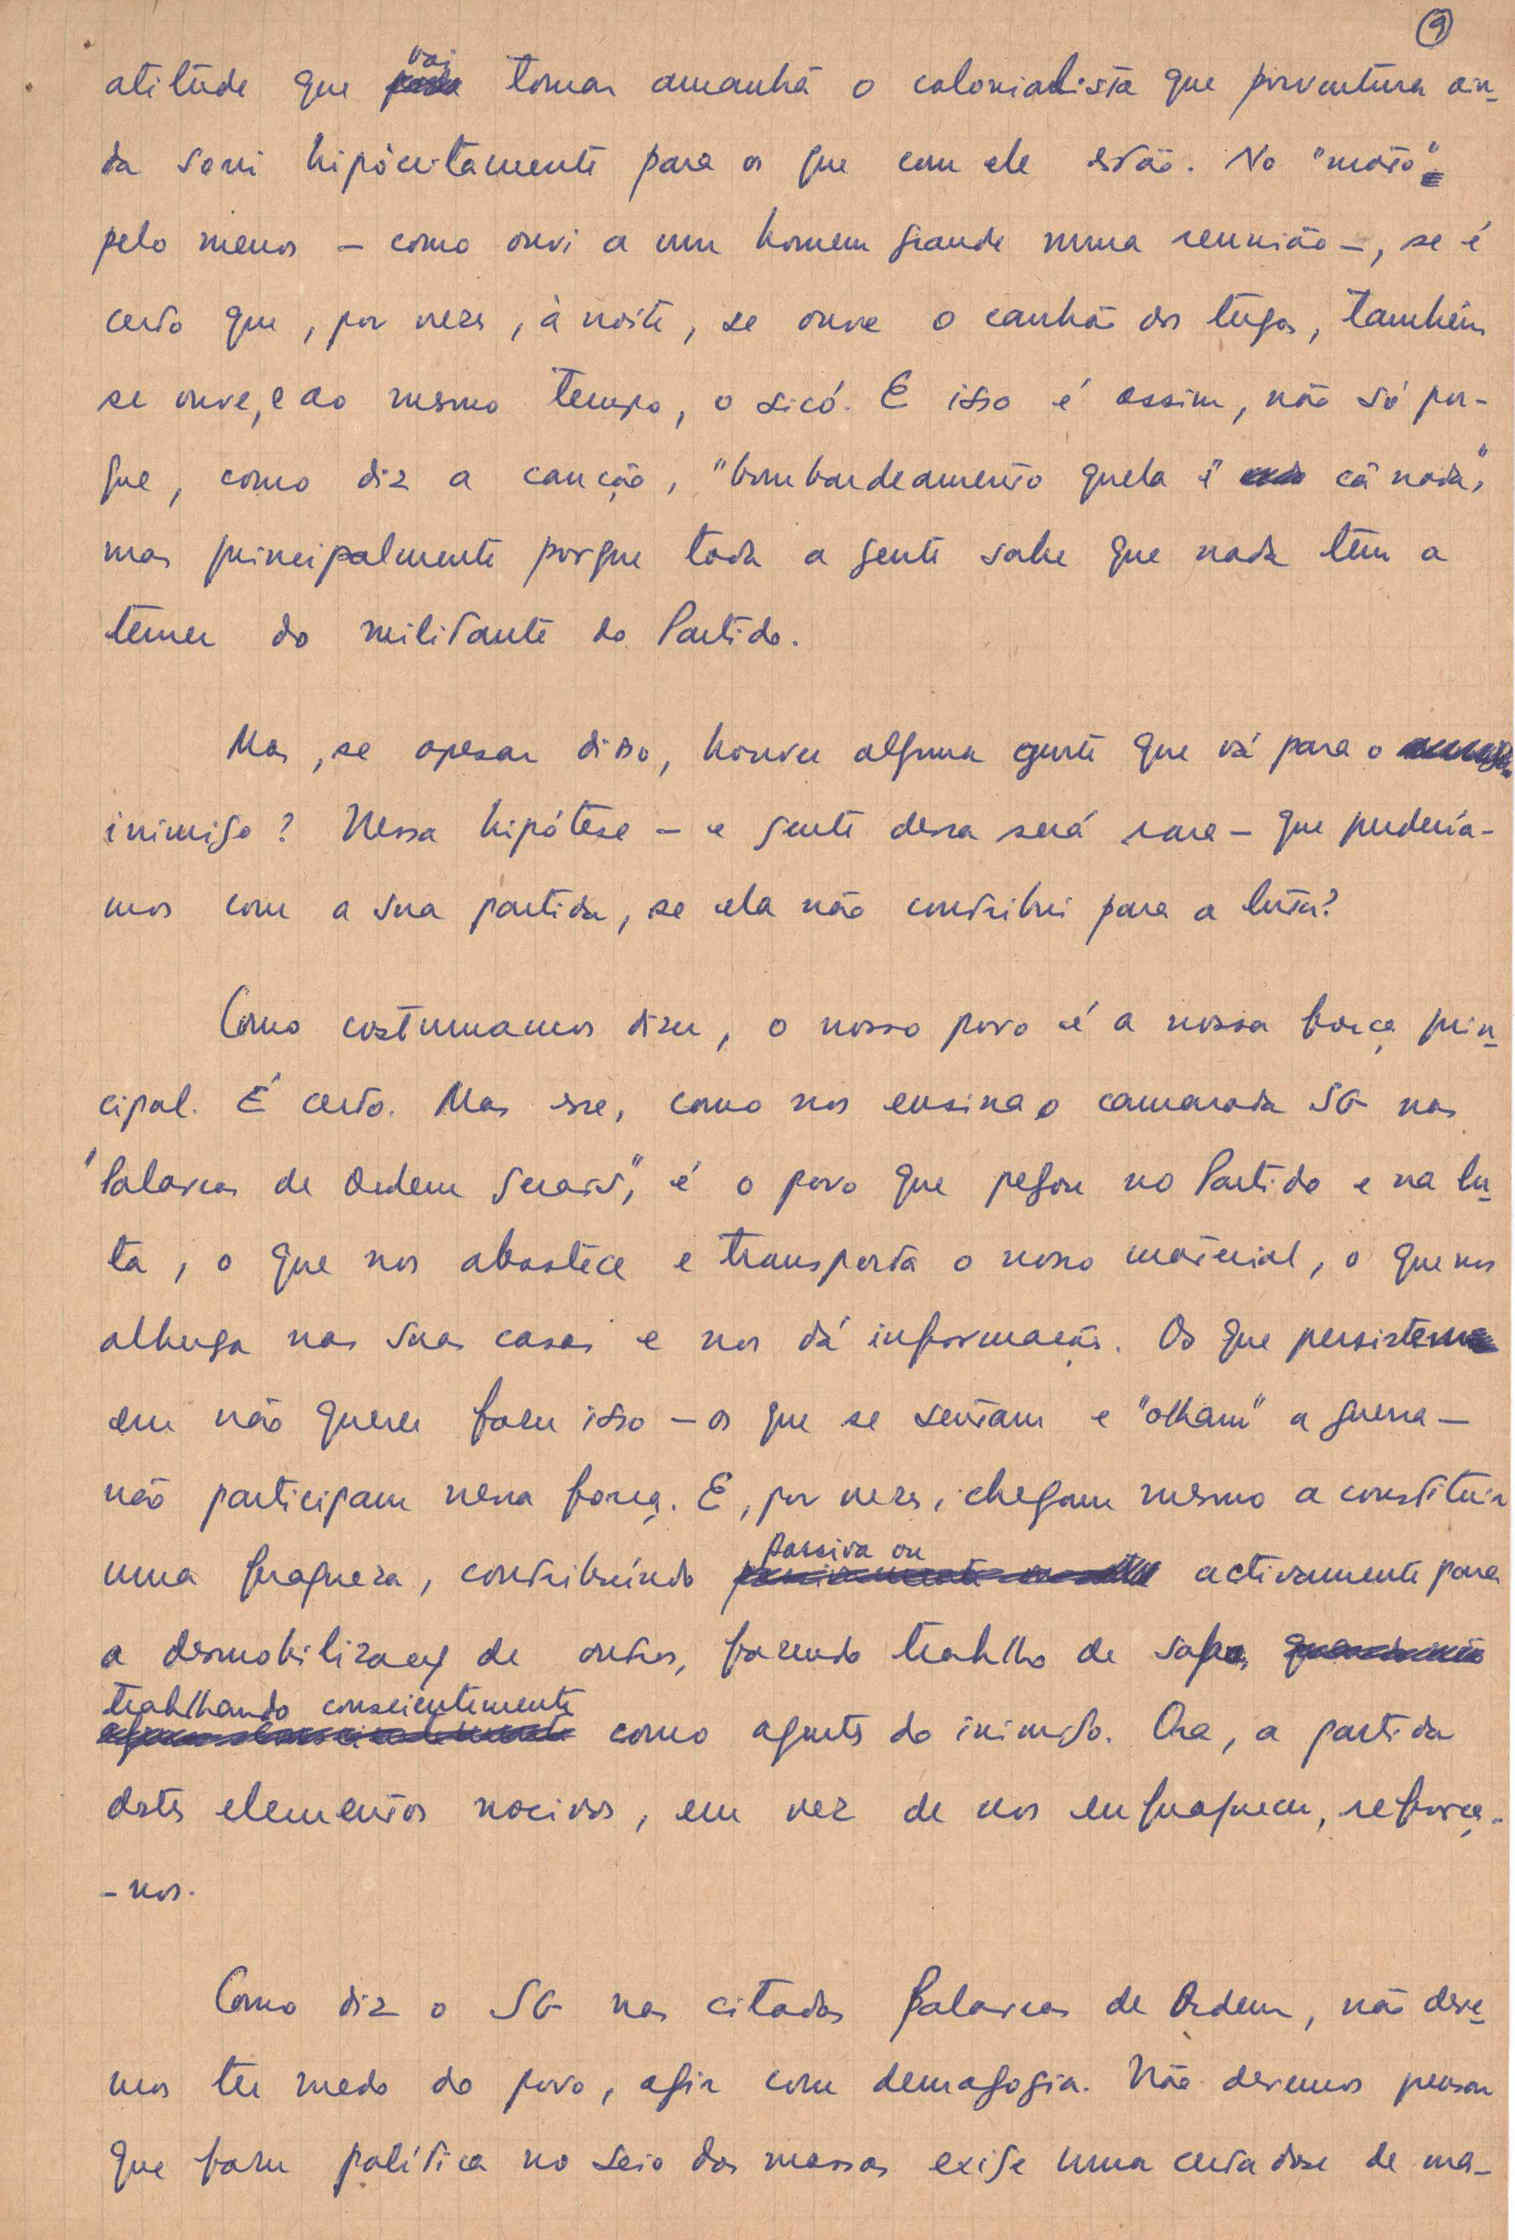 9
atitude que vai tomar amanhã o colonialista que porventura ain-
da sorri hipòcritamente para os que com ele estão. No "mato",
pelo menos – como ouvi a um homem grande numa reunião –, se é
certo que, por vezes, à noite, se ouve o canhão dos tugas, também
se ouve, e ao mesmo tempo, o sicó. E isso é assim, não só por-
que, como diz a canção, "bombardeamento quela i cã nada",
mas principalmente porque toda a gente sabe que nada tem a
temer do militante do Partido.
Mas, se apesar disso, houver alguma gente que vá para o
inimigo? Nessa hipótese – e gente dessa será rara – que perdería-
mos com a sua partida, se ela não contribui para a luta?
Como costumamos dizer, o nosso povo é a nossa força prin-
cipal. É certo. Mas esse, como nos ensina o camarada SG nas
"Palavras de Ordem Gerais", é o povo que pegou no Partido e na lu-
ta, o que nos abastece e transporta o nosso material, o que nos
alberga nas suas casas e nos dá informação. Os que persistem
em não querer fazer isso – os que se sentam e "olham" a guerra –
não participam nessa força. E, por vezes, chegam mesmo a constituir
uma fraqueza, contribuíndo passiva ou activamente para
a desmobilização de outros, fazendo trabalho de sapa,
trabalhando conscientemente como agentes do inimigo. Ora, a partida
destes elementos nocivos, em vez de nos enfraquecer, reforça-
-nos.
Como diz o SG nas citadas Palavras de Ordem, não deve-
mos ter medo do povo, agir com demagogia. Não devemos pensar
que fazer política no seio das massas exige uma certa dose de ma-